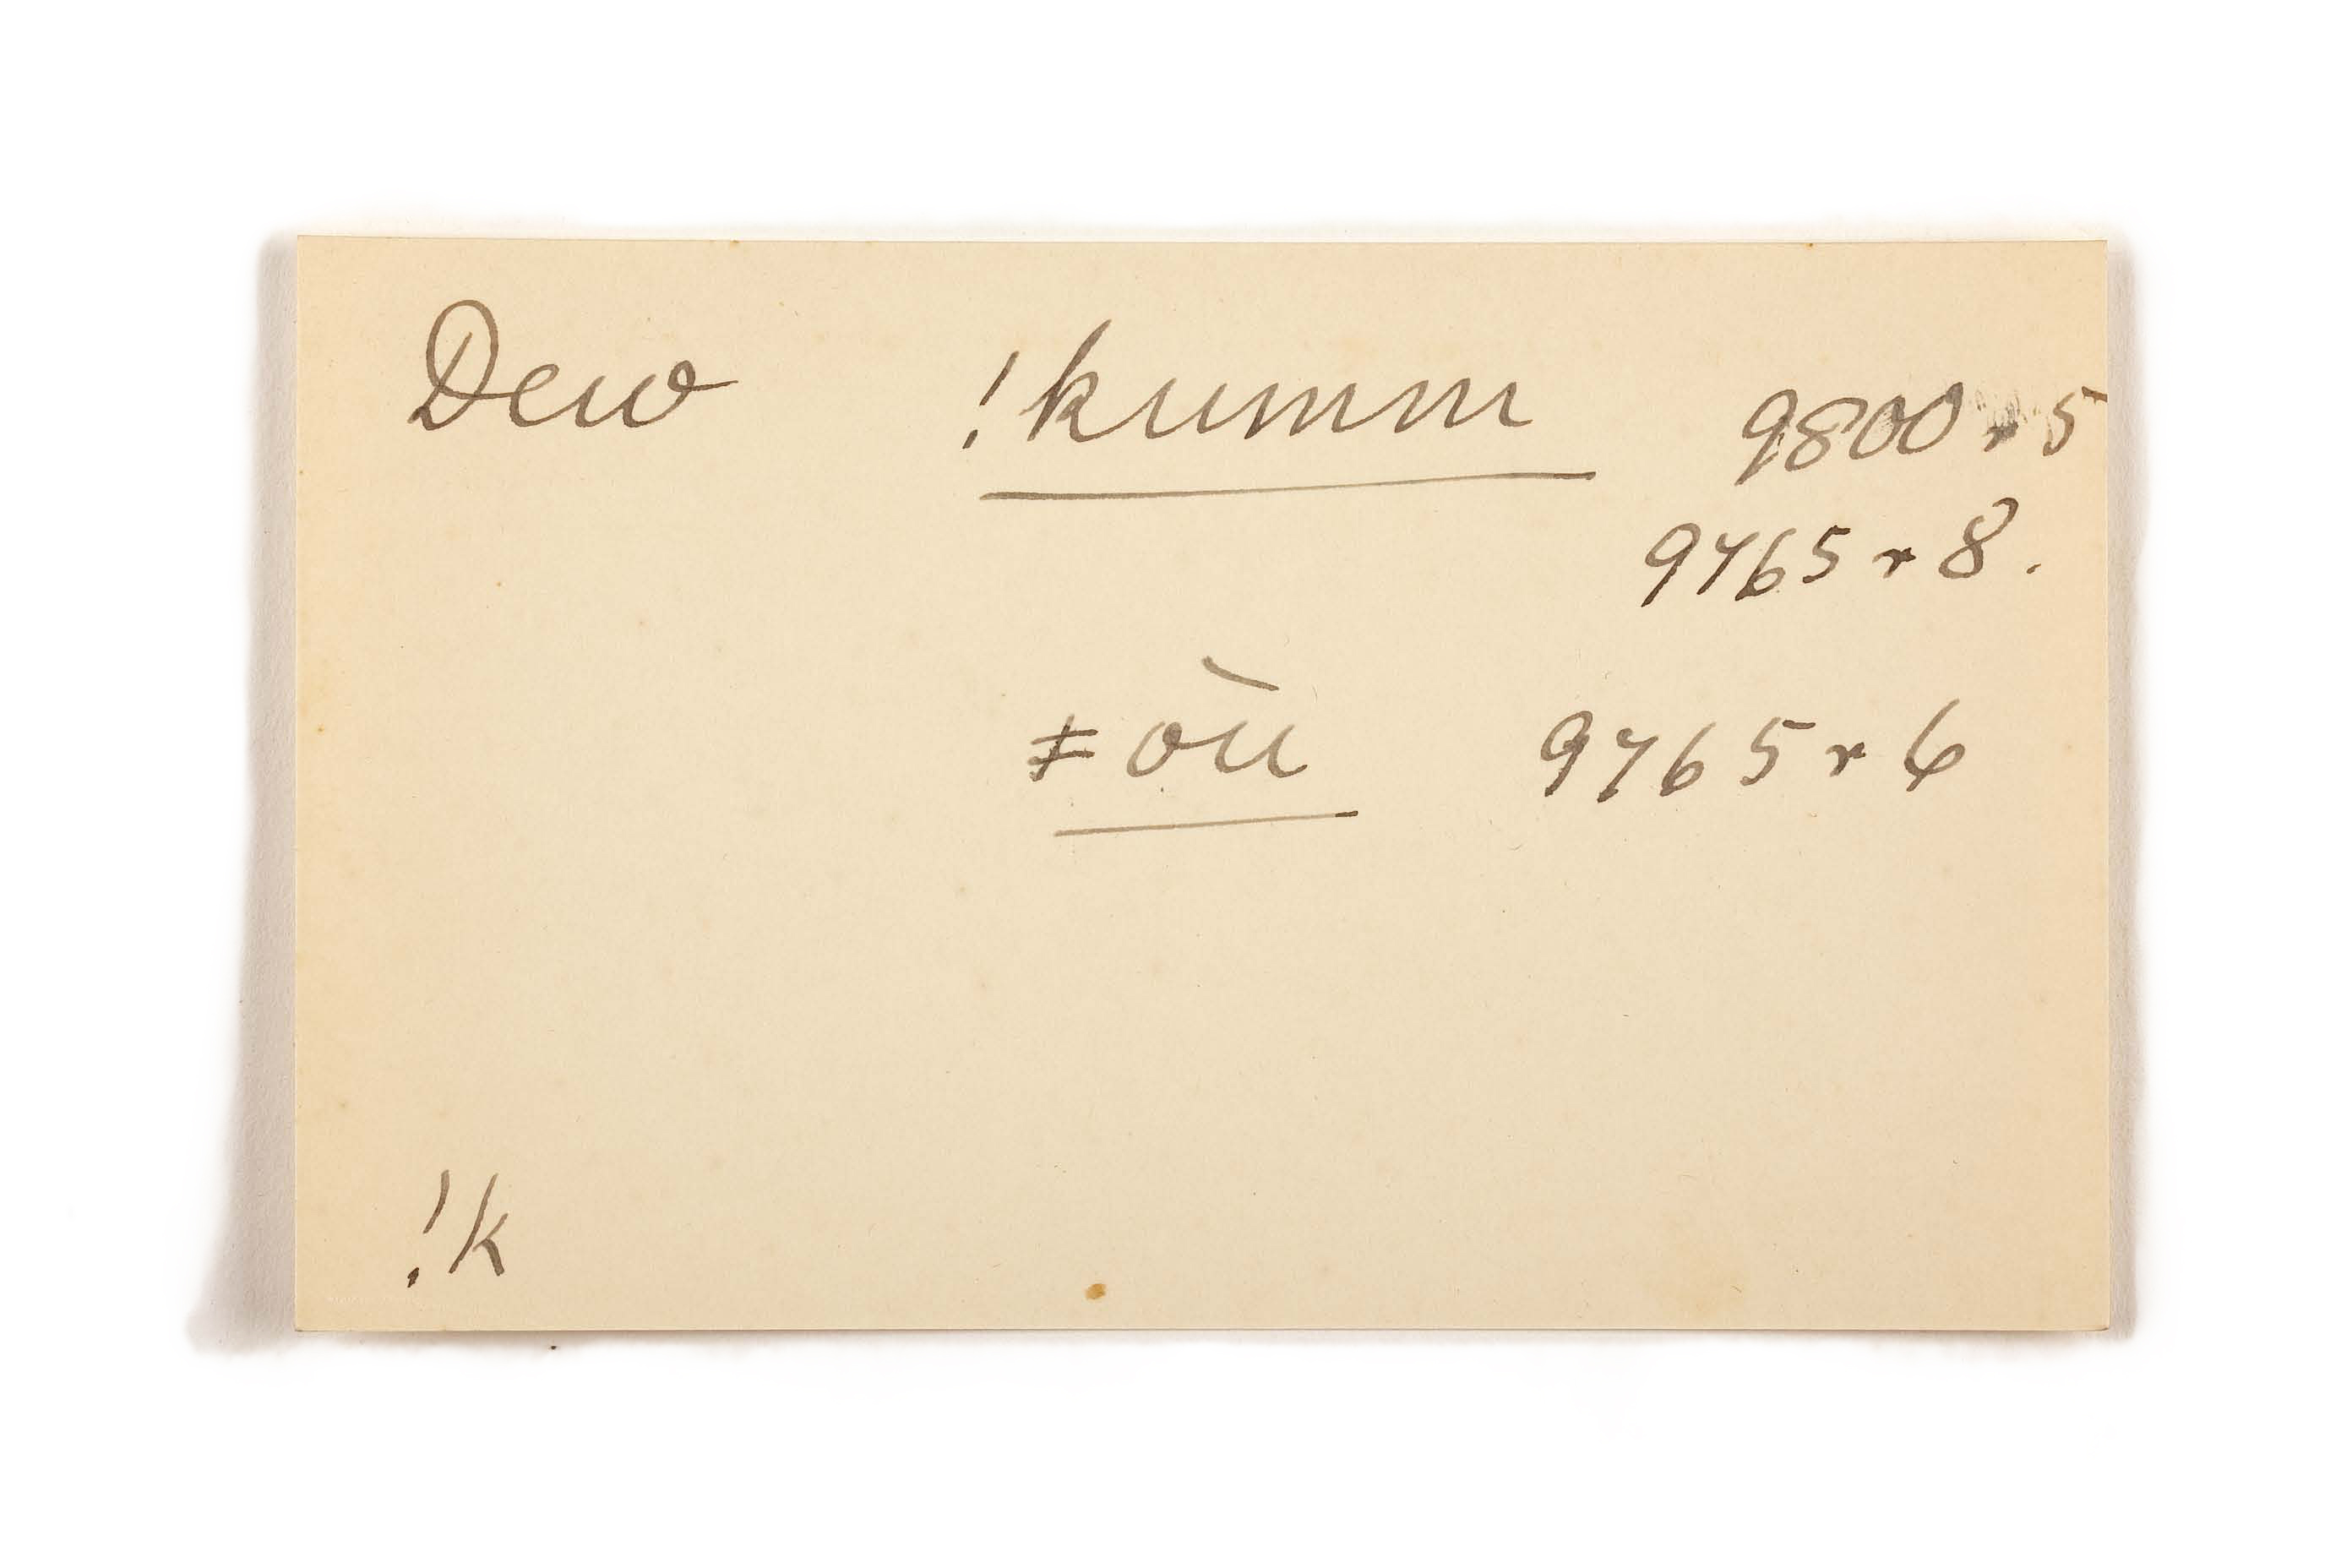 Dew !kumm 9800 r 5
9765 r 8.
ǂòu 9765 r 6
!k